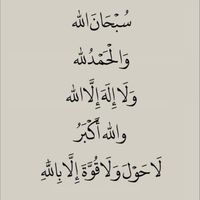 سُبْحَانَ الله
وَالْحَمْدُ لله
وَلَا إِلَهَ إِلَّا الله
والله أَكْبَرُ
لَا حَوْلَ وَلَا قُوَّةَ إِلَّا بِاللهِ